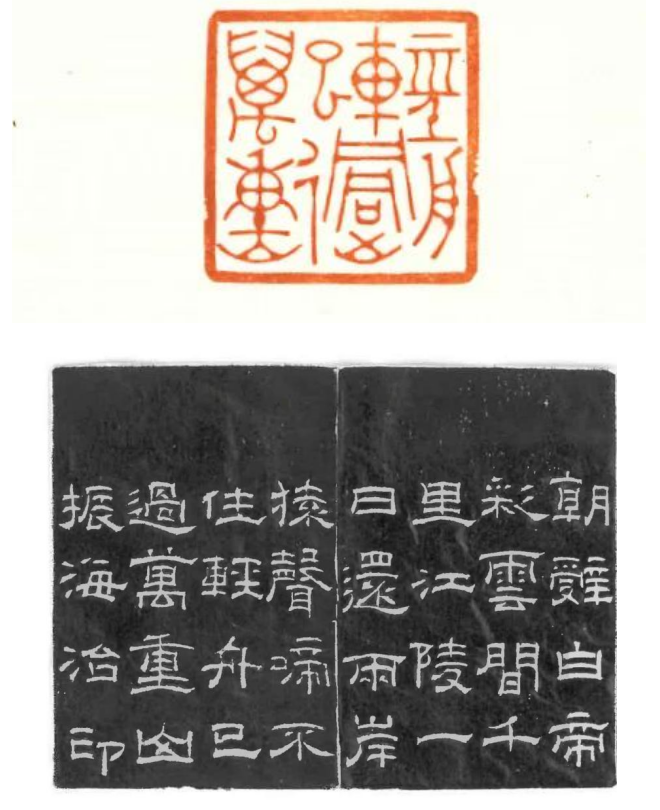 輕舟
已過
萬重山
朝辭白帝
彩雲間千
里江陵一
日還兩岸
猿聲啼不
住輕舟已
過萬重山
振海治印